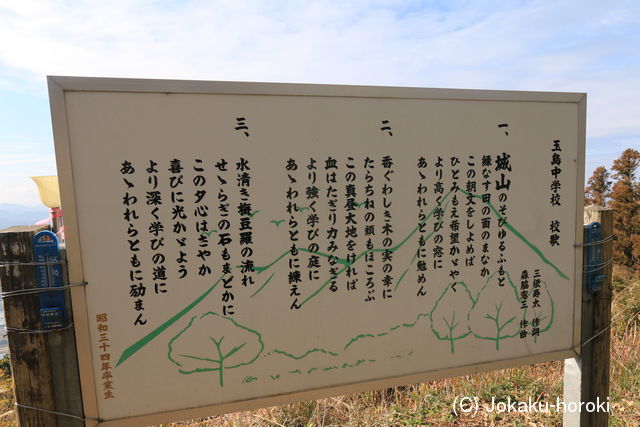 玉島中学校 校歌
三根寿太 作詞
森脇憲三 作曲
一、
城山のそびゆるふもと
緑なす田の面のまなか
この朝文をしよめば
ひとみもえ希望かゞやく
より高く学びの窓に
あゝわれらともに勉めん
二、
香ぐわしき木の実の幸に
たらちねの顔もほころぶ
この真昼大地をければ
血はたぎり力みなぎる
より強く学びの庭に
あゝわれらともに練えん
三、
水清き梅豆羅の流れ
せゝらぎの石もまどかに
この夕心はさやか
喜びに光かゞよう
より深く学びの道に
あゝわれらともに励まん
昭和三十四年卒業生
(C) Jokaku-horoki